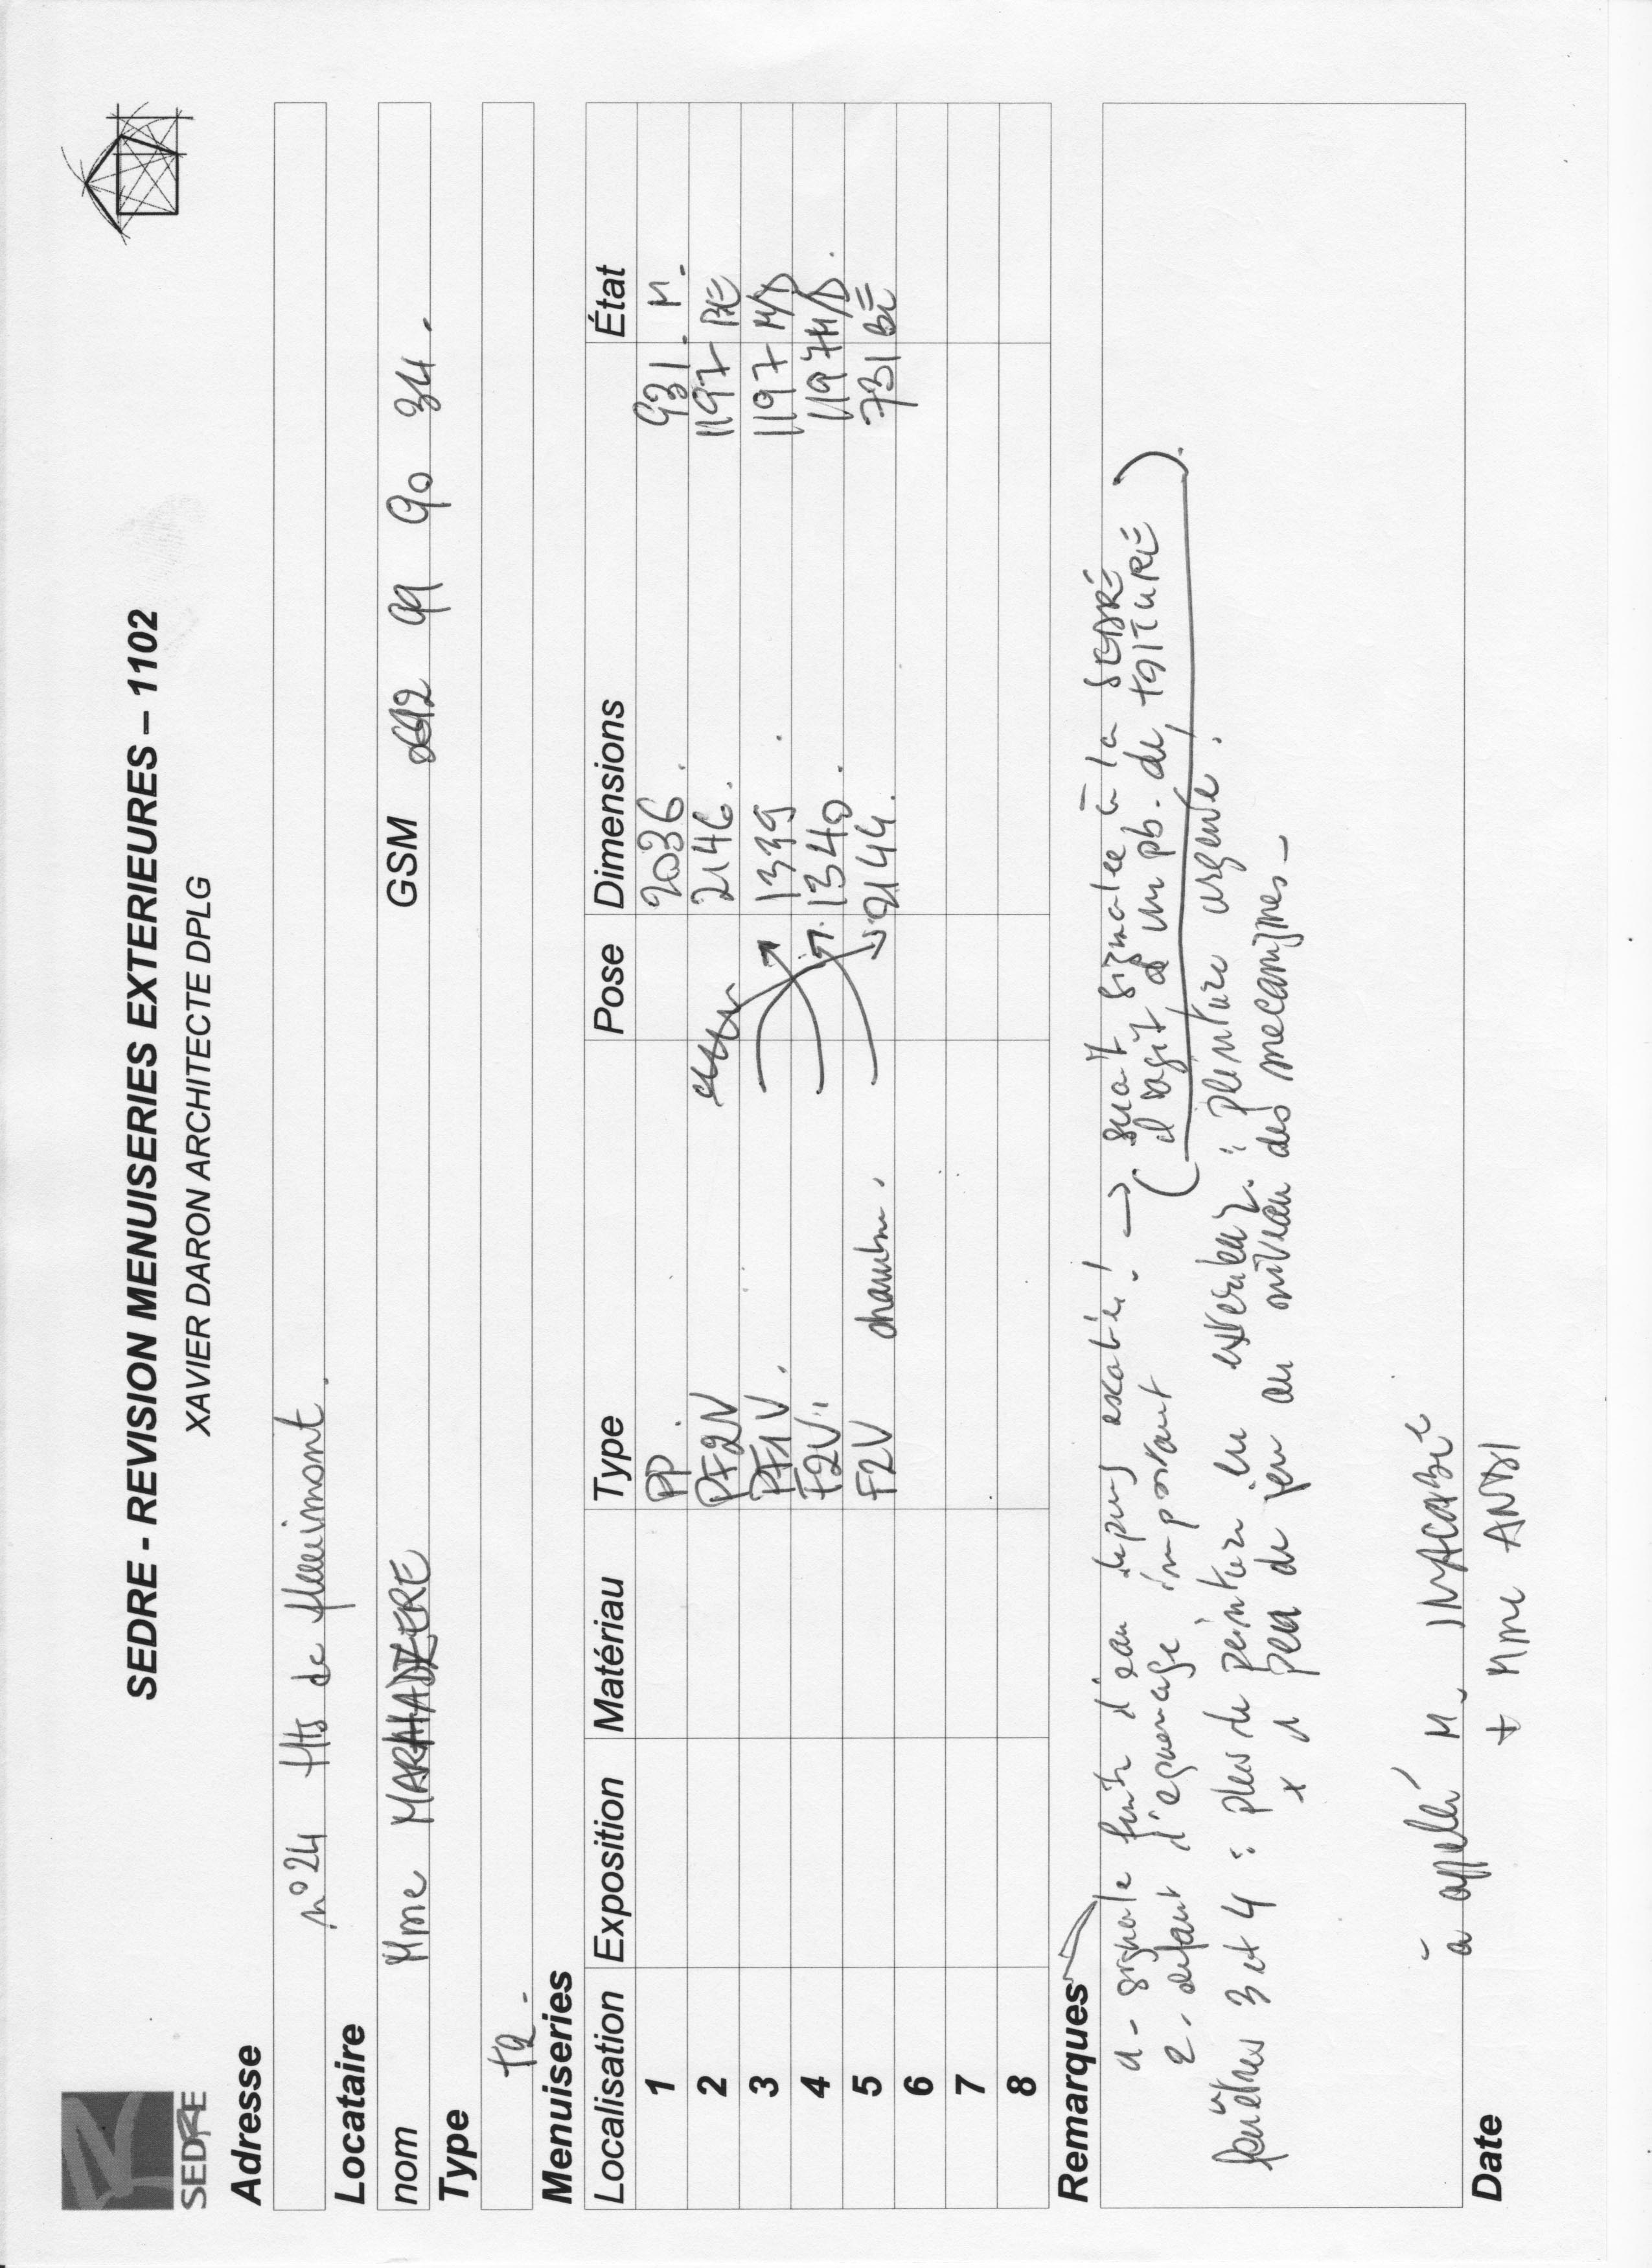 SEDRE - REVISION MENUISERIES EXTERIEURES – 1102
XAVIER DARON ARCHITECTE DPLG
SEDRE
Adresse
n°24 Hts de
Locataire
nom Mme GSM 0692 99 90 34.
Type
Menuiseries
Localisation Exposition Matériau Type Pose Dimensions État
1 PP. 2036. 931. M.
2 PF2V 2146. 1197 BE
3 PF1V. 1339 1197 M/D
4 F2V 1340. 1197 M/D.
5 F2V chambre. 2144. 731 BE
6
7
8
Remarques
1 - signale fuite d'eau depuis escalier! → serait signalée à la SEDRE
2. défaut d'équerrage important (il s'agit d'un pb. de TOITURE)
fenêtres 3 et 4 : plus de peinture en : peinture urgente.
x peu de jeu au niveau des mécanismes -
à appelé M.
Date + Mme